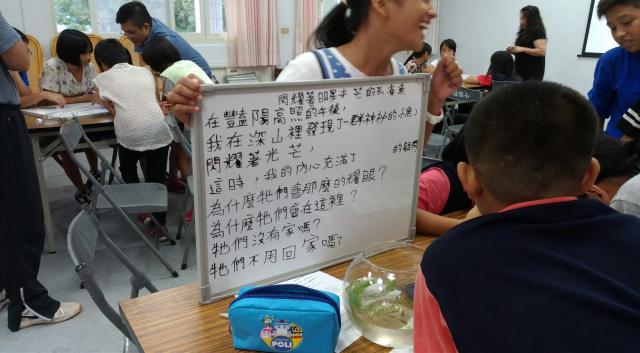 閃耀著明星光芒的孔雀魚
在豔陽高照的午後,
我在深山裡發現了一群神祕的小魚,
閃耀著光芒,
這時,我的內心充滿了 的疑問
為什麼牠們會那麼的耀眼?
為什麼牠們會在這裡?
牠們沒有家嗎?
牠們不用回家嗎?
POLI